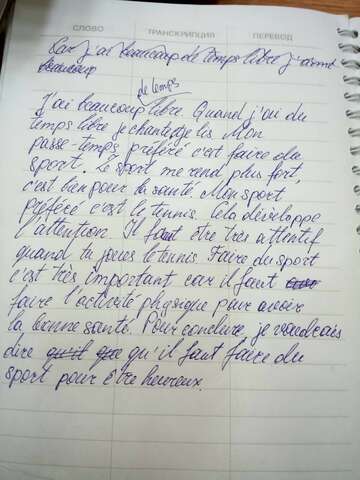 СЛОВО ТРАНСКРИПЦИЯ ПЕРЕВОД
Car j'ai beaucoup de temps libre j'
beaucoup
de temps
J'ai beaucoup libre. Quand j'ai du
temps libre je chante, je lis. Mon
passe-temps préféré c'est faire du
sport. Le sport me rend plus fort,
c'est bien pour la santé. Mon sport
préféré c'est le tennis. Cela développe
l'attention. Il faut être très attentif
quand tu joues le tennis. Faire du sport
c'est très important car il faut
faire l'activité physique pour avoir
la bonne santé. Pour conclure je voudrais
dire qu'il faut faire du
sport pour être heureux.